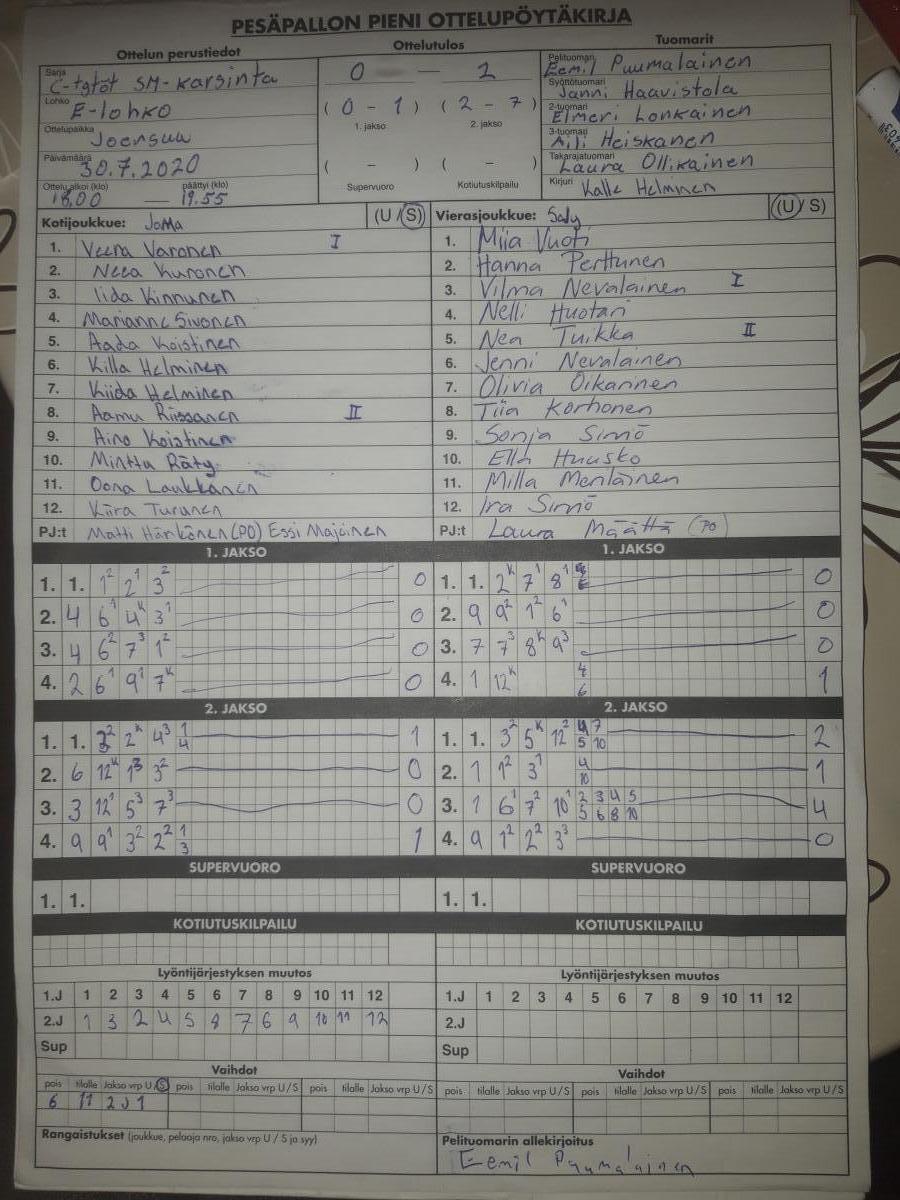 PESÄPALLON PIENI OTTELUPÖYTÄKIRJA
Ottelun perustiedot
Ottelutulos
Tuomarit
Sarja C-tytöt SM-karsinta
Lohko E-lohko
Ottelupaikka Joensuu
Päivämäärä 30.7.2020
Ottelu alkoi (klo) 18.00 — päättyi (klo) 19.55
0 — 2
(0 - 1) (2 - 7)
1. jakso 2. jakso
( - ) ( - )
Supervuoro Kotiutuskilpailu
Pelituomari Eemil Puumalainen
Syöttötuomari Janni Haavistola
2-tuomari Elmeri Lonkainen
3-tuomari Aili Heiskanen
Takarajatuomari Laura Ollikainen
Kirjuri Kalle Helminen
Kotijoukkue: JoMa (U/S)
1. Veera Varonen I
2. Neea Kuronen
3. Iida Kinnunen
4. Marianne Sivonen
5. Aada Koistinen
6. Killa Helminen
7. Kiida Helminen
8. Aamu Riissanen II
9. Aino Koistinen
10. Minttu Räty
11. Oona Laukkanen
12. Kiira Turunen
PJ:t Matti Härkönen (PO) Essi Majoinen
Vierasjoukkue: SaJy (U/S)
1. Miia Vuoti
2. Hanna Perttunen
3. Vilma Nevalainen I
4. Nelli Huotari
5. Nea Tuikka II
6. Jenni Nevalainen
7. Olivia Oikarinen
8. Tiia Korhonen
9. Sonja Sirniö
10. Ella Huusko
11. Milla Meriläinen
12. Ira Sirniö
PJ:t Laura Määttä (PO)
1. JAKSO
1. 1. 1² 2¹ 3² 0
2. 4 6¹ 4ᵏ 3¹ 0
3. 4 6² 7³ 1² 0
4. 2 6¹ 9¹ 7ᵏ 0
1. JAKSO
1. 1. 2ᵏ 7¹ 8¹ 0
2. 9 9² 1² 6¹ 0
3. 7 7³ 8ᵏ 9³ 0
4. 1 12ᵏ 4 6 1
2. JAKSO
1. 1. 2² 2ᵏ 4³ 1 4 1
2. 6 12ᵏ 1³ 3² 0
3. 3 12¹ 5³ 7³ 0
4. 9 9¹ 3² 2² 1 3 1
2. JAKSO
1. 1. 3² 5ᵏ 12² 4 7 5 10 2
2. 1 1² 3¹ 4 10 1
3. 1 6¹ 7² 10¹ 2 3 4 5 5 6 8 10 4
4. 9 1² 2² 3³ 0
SUPERVUORO
1. 1.
SUPERVUORO
1. 1.
KOTIUTUSKILPAILU
KOTIUTUSKILPAILU
Lyöntijärjestyksen muutos
1.J 1 2 3 4 5 6 7 8 9 10 11 12
2.J 1 3 2 4 5 8 7 6 9 10 11 12
Sup
Lyöntijärjestyksen muutos
1.J 1 2 3 4 5 6 7 8 9 10 11 12
2.J
Sup
Vaihdot
pois tilalle Jakso vrp U/S pois tilalle Jakso vrp U/S pois tilalle Jakso vrp U/S
6 11 2J1
Vaihdot
pois tilalle Jakso vrp U/S pois tilalle Jakso vrp U/S pois tilalle Jakso vrp U/S
Rangaistukset (joukkue, pelaaja nro, jakso vrp U / S ja syy)
Pelituomarin allekirjoitus
Eemil Puumalainen